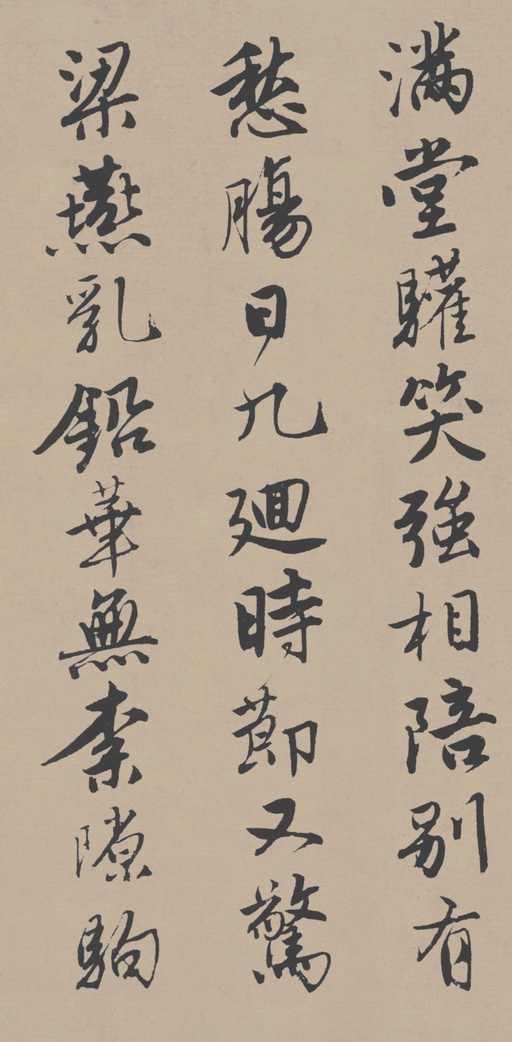 滿堂驩笑強相陪別有
愁腸日九廻時節又驚
梁燕乳鉛華無柰隙駒